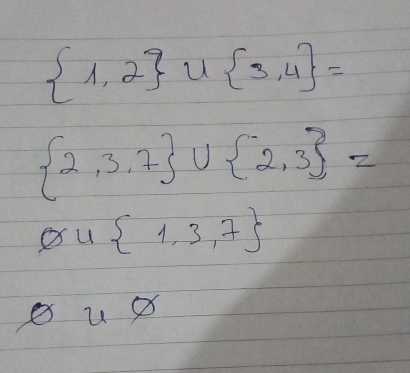 {1,2} ∪ {3,4} =
{2,3,7} ∪ {-2,3} =
∅ ∪ {1,3,7}
∅ ∪ ∅